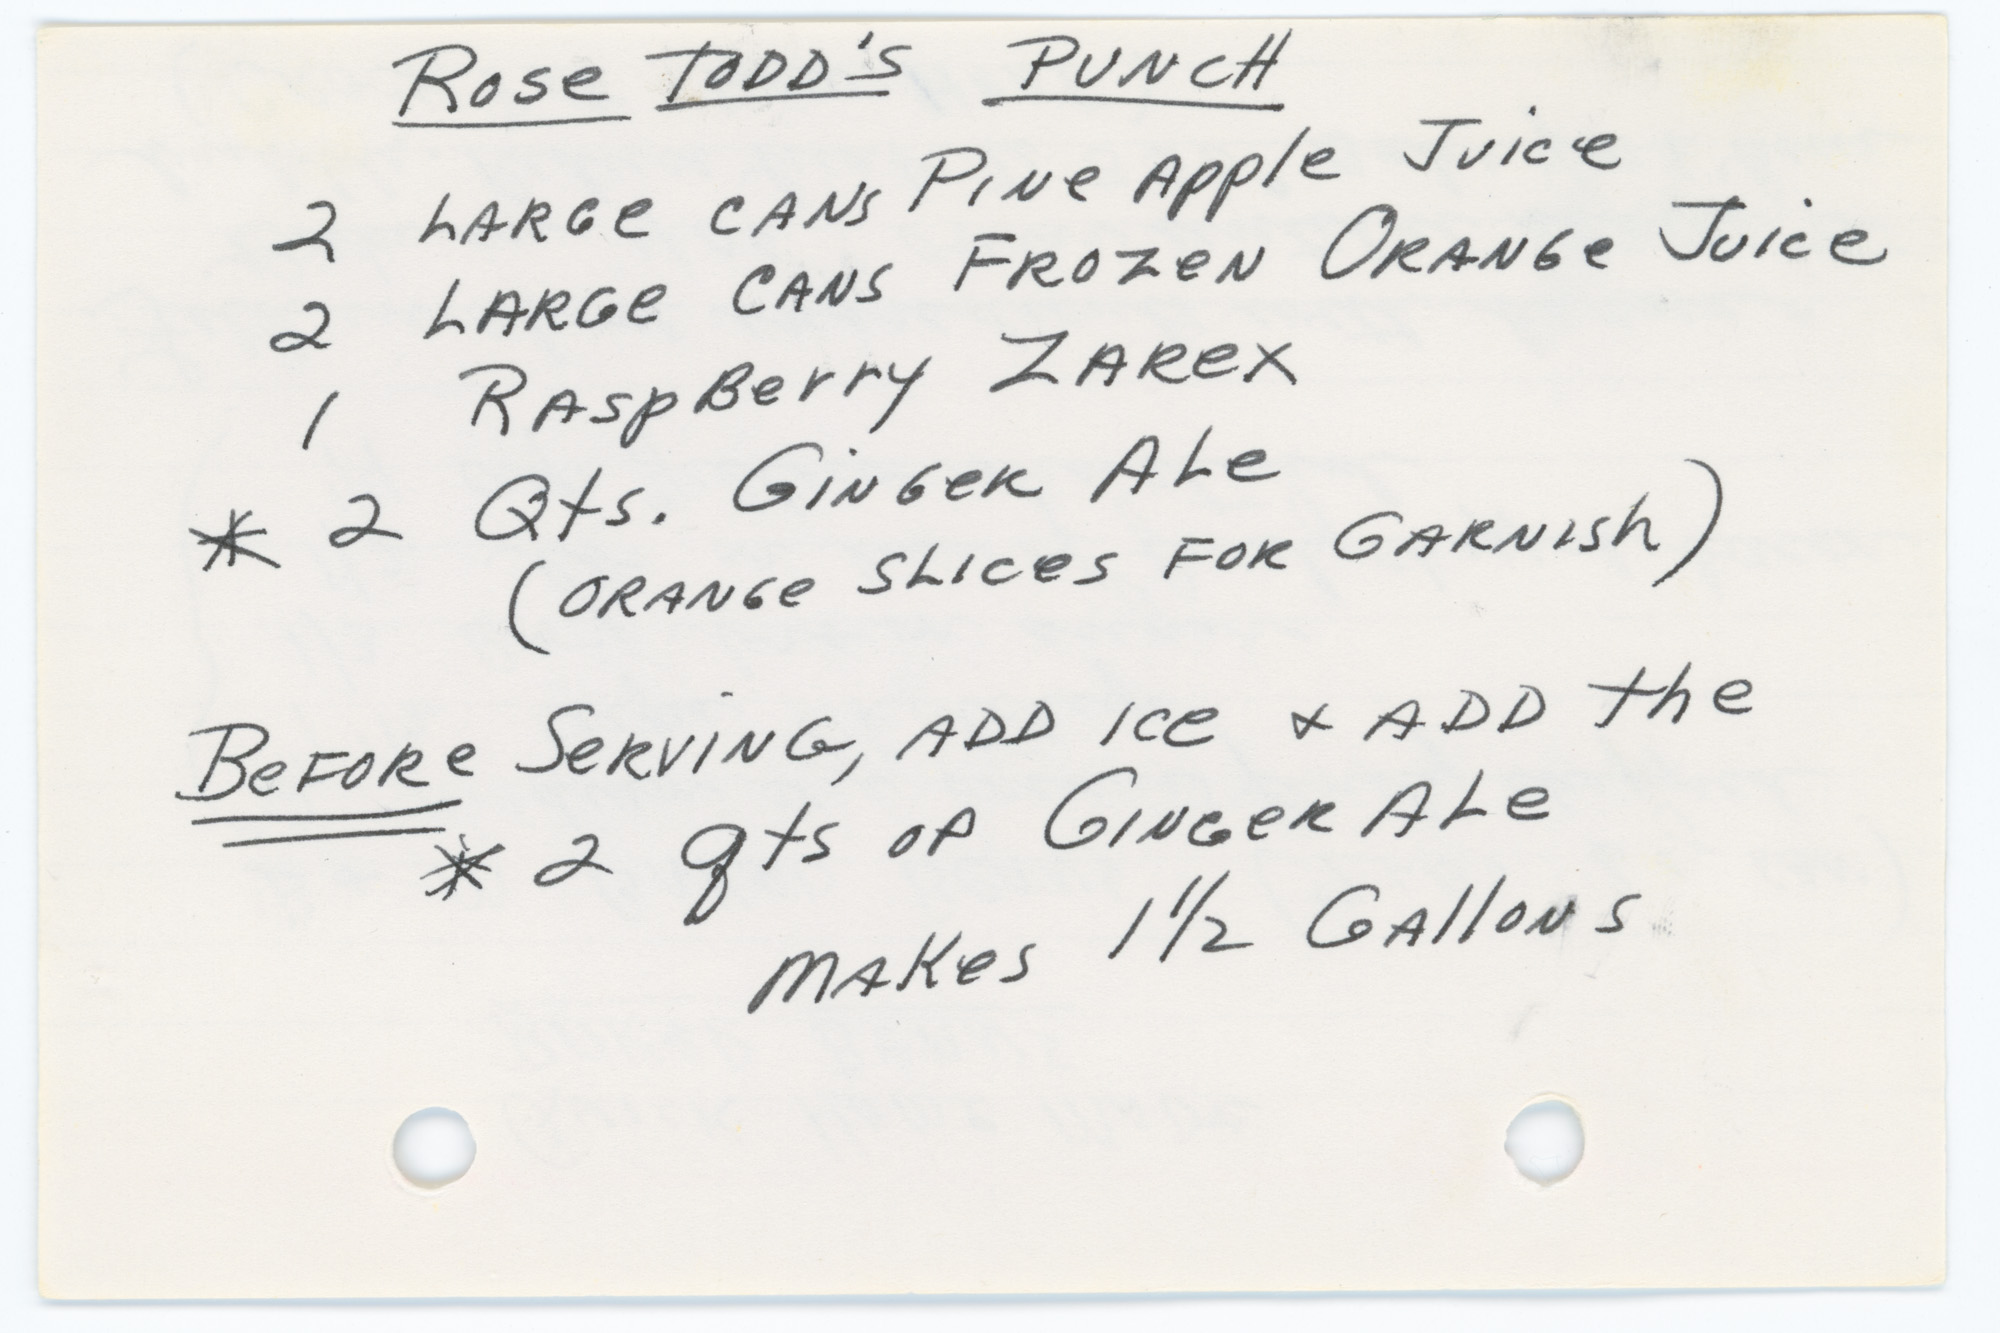 Rose Todd's Punch
2 Large cans Pineapple Juice
2 Large cans Frozen Orange Juice
1 Raspberry Zarex
* 2 Qts. Ginger Ale
(orange slices for Garnish)
Before Serving, add ice & add the
* 2 qts of Ginger Ale
makes 1 1/2 Gallons